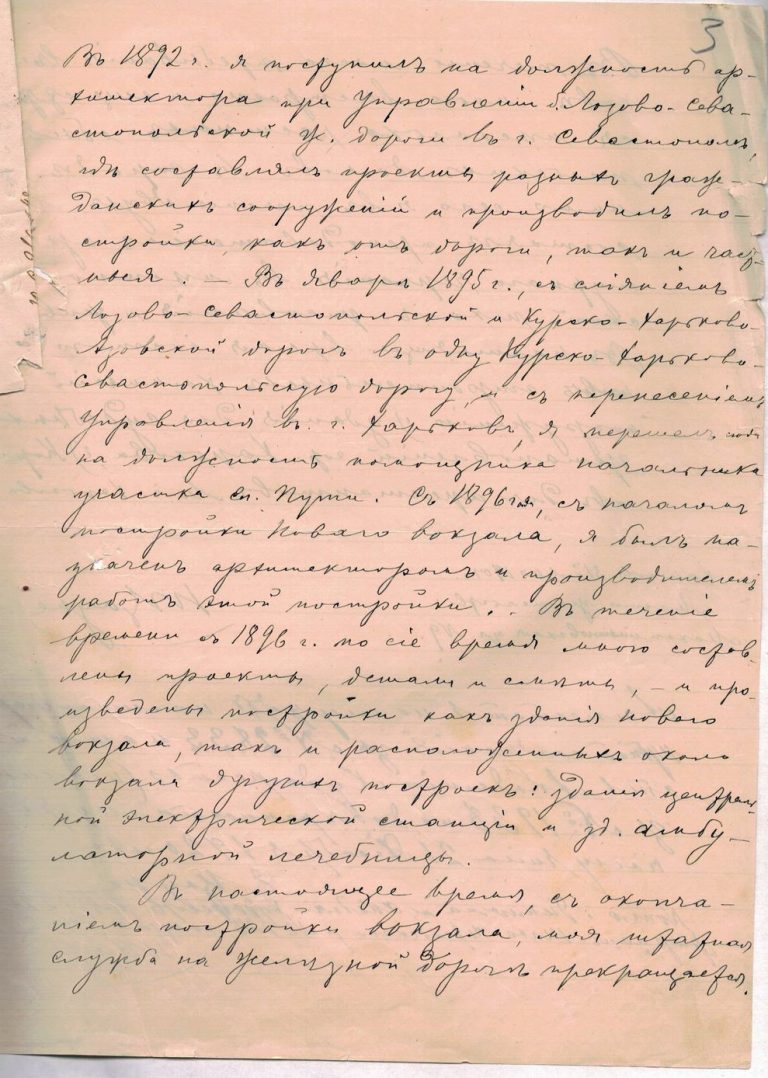 3
Въ 1892 г. я поступилъ на должность ар-
хитектора при Управленіи б. Лозово-Сева-
стопольской ж. дороги въ г. Севастополѣ,
гдѣ составлялъ проекты разныхъ граж-
данскихъ сооруженій и производилъ по-
стройки, какъ отъ дороги, такъ и част-
ныя. – Въ январѣ 1895 г., съ сліяніемъ
Лозово-Севастопольской и Курско-Харьково-
Азовской дорогъ въ одну Курско-Харьково-
Севастопольскую дорогу, и съ перенесеніемъ
Управленія въ г. Харьковъ, я перешелъ
на должность помощника начальника
участка сл. Пути. Съ 1896 года, съ началомъ
постройки Новаго вокзала, я былъ на-
значенъ архитекторомъ и производителемъ
работъ этой постройки. . Въ теченіе
времени съ 1896 г. по сіе время мною состав-
лены проекты, детали и смѣты, – и про-
изведены постройки какъ зданія Новаго
вокзала, такъ и расположенныхъ около
вокзала другихъ построекъ: зданія централь-
ной электрической станціи и зд. амбу-
латорной лечебницы.
Въ настоящее время, съ оконча-
ніемъ постройки вокзала, моя штатная
служба на желѣзной дорогѣ прекращается.